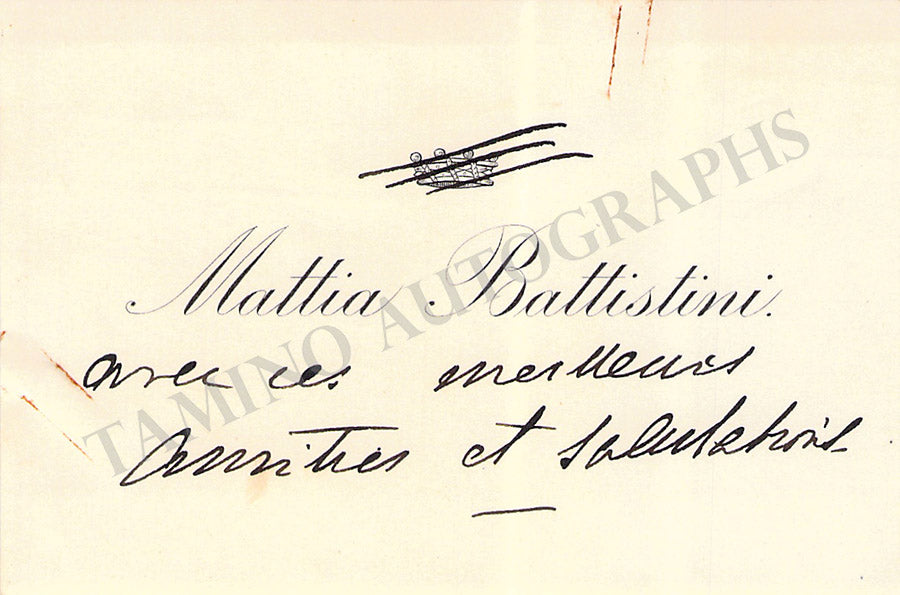 Mattia Battistini.
avec ces meilleurs
Amitiés et Salutations
TAMINO AUTOGRAPHS